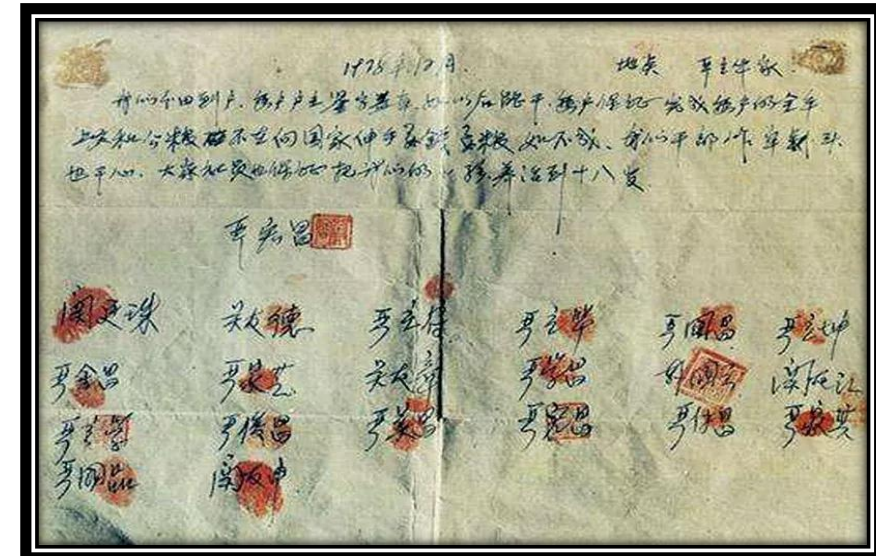 1978年12月. 地点 严立华家
我们分田到户，每户户主签字盖章，如以后能干，每户保证完成每户的全年
上交和公粮 不在向国家伸手要钱要粮 如不成，我们干部作牢刹头
也干心，大家社员也保证把我们的小孩养活到十八岁
严宏昌
关廷珠 关友德 严立符 严立华 严国昌 严立坤
严金昌 严家芝 关友章 严学昌 韩国云 关友江
严立学 严俊昌 严美昌 严宏昌 严付昌 严家其
严国品 关友申